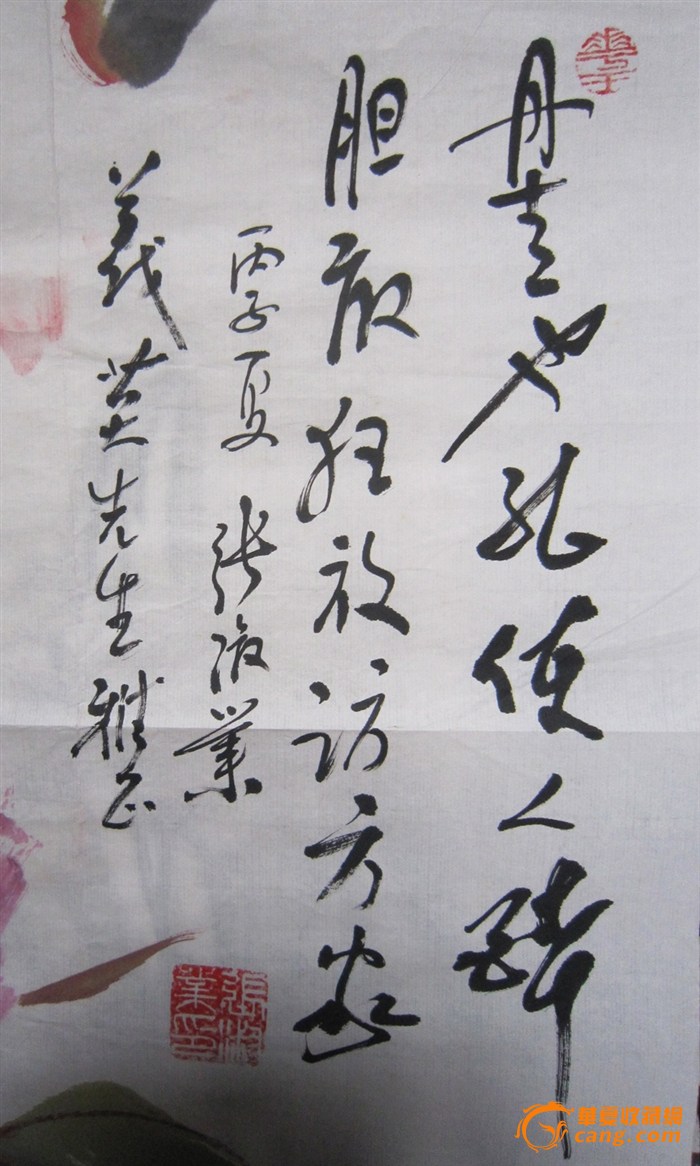 丹青也能使人醉
胆敢狂放访方家
丙子夏 张浪業
義芸先生雅正
華夏收藏網
cang.com